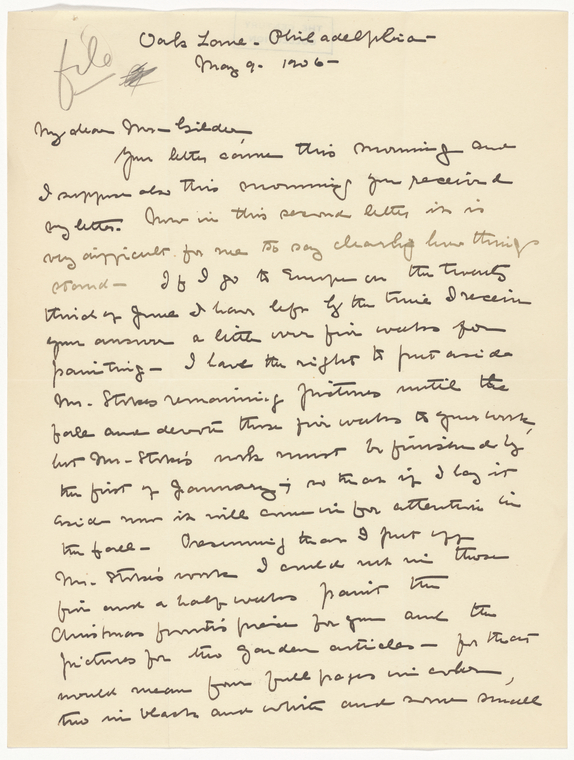 file
Oak Lane - Philadelphia -
May 9 - 1906 -
My dear Mr - Gilder
Your letter came this morning and
I suppose also this morning you received
my letter. Now in this second letter it is
very difficult for me to say clearly how things
stand - If I go to Europe on the twenty
third of June I have left by the time I receive
your answer a little over five weeks for
painting - I have the right to put aside
Mr. Stokes remaining pictures until the
fall and devote those five weeks to your work,
but Mr - Stokes's work must be finished by
the first of January; so that if I lay it
aside now it will come in for attention in
the fall - Presuming that I put off
Mr. Stokes's work I could not in those
five and a half weeks paint the
Christmas frontispiece for you and the
pictures for two garden articles - for that
would mean four full pages in color,
two in black and white and some small